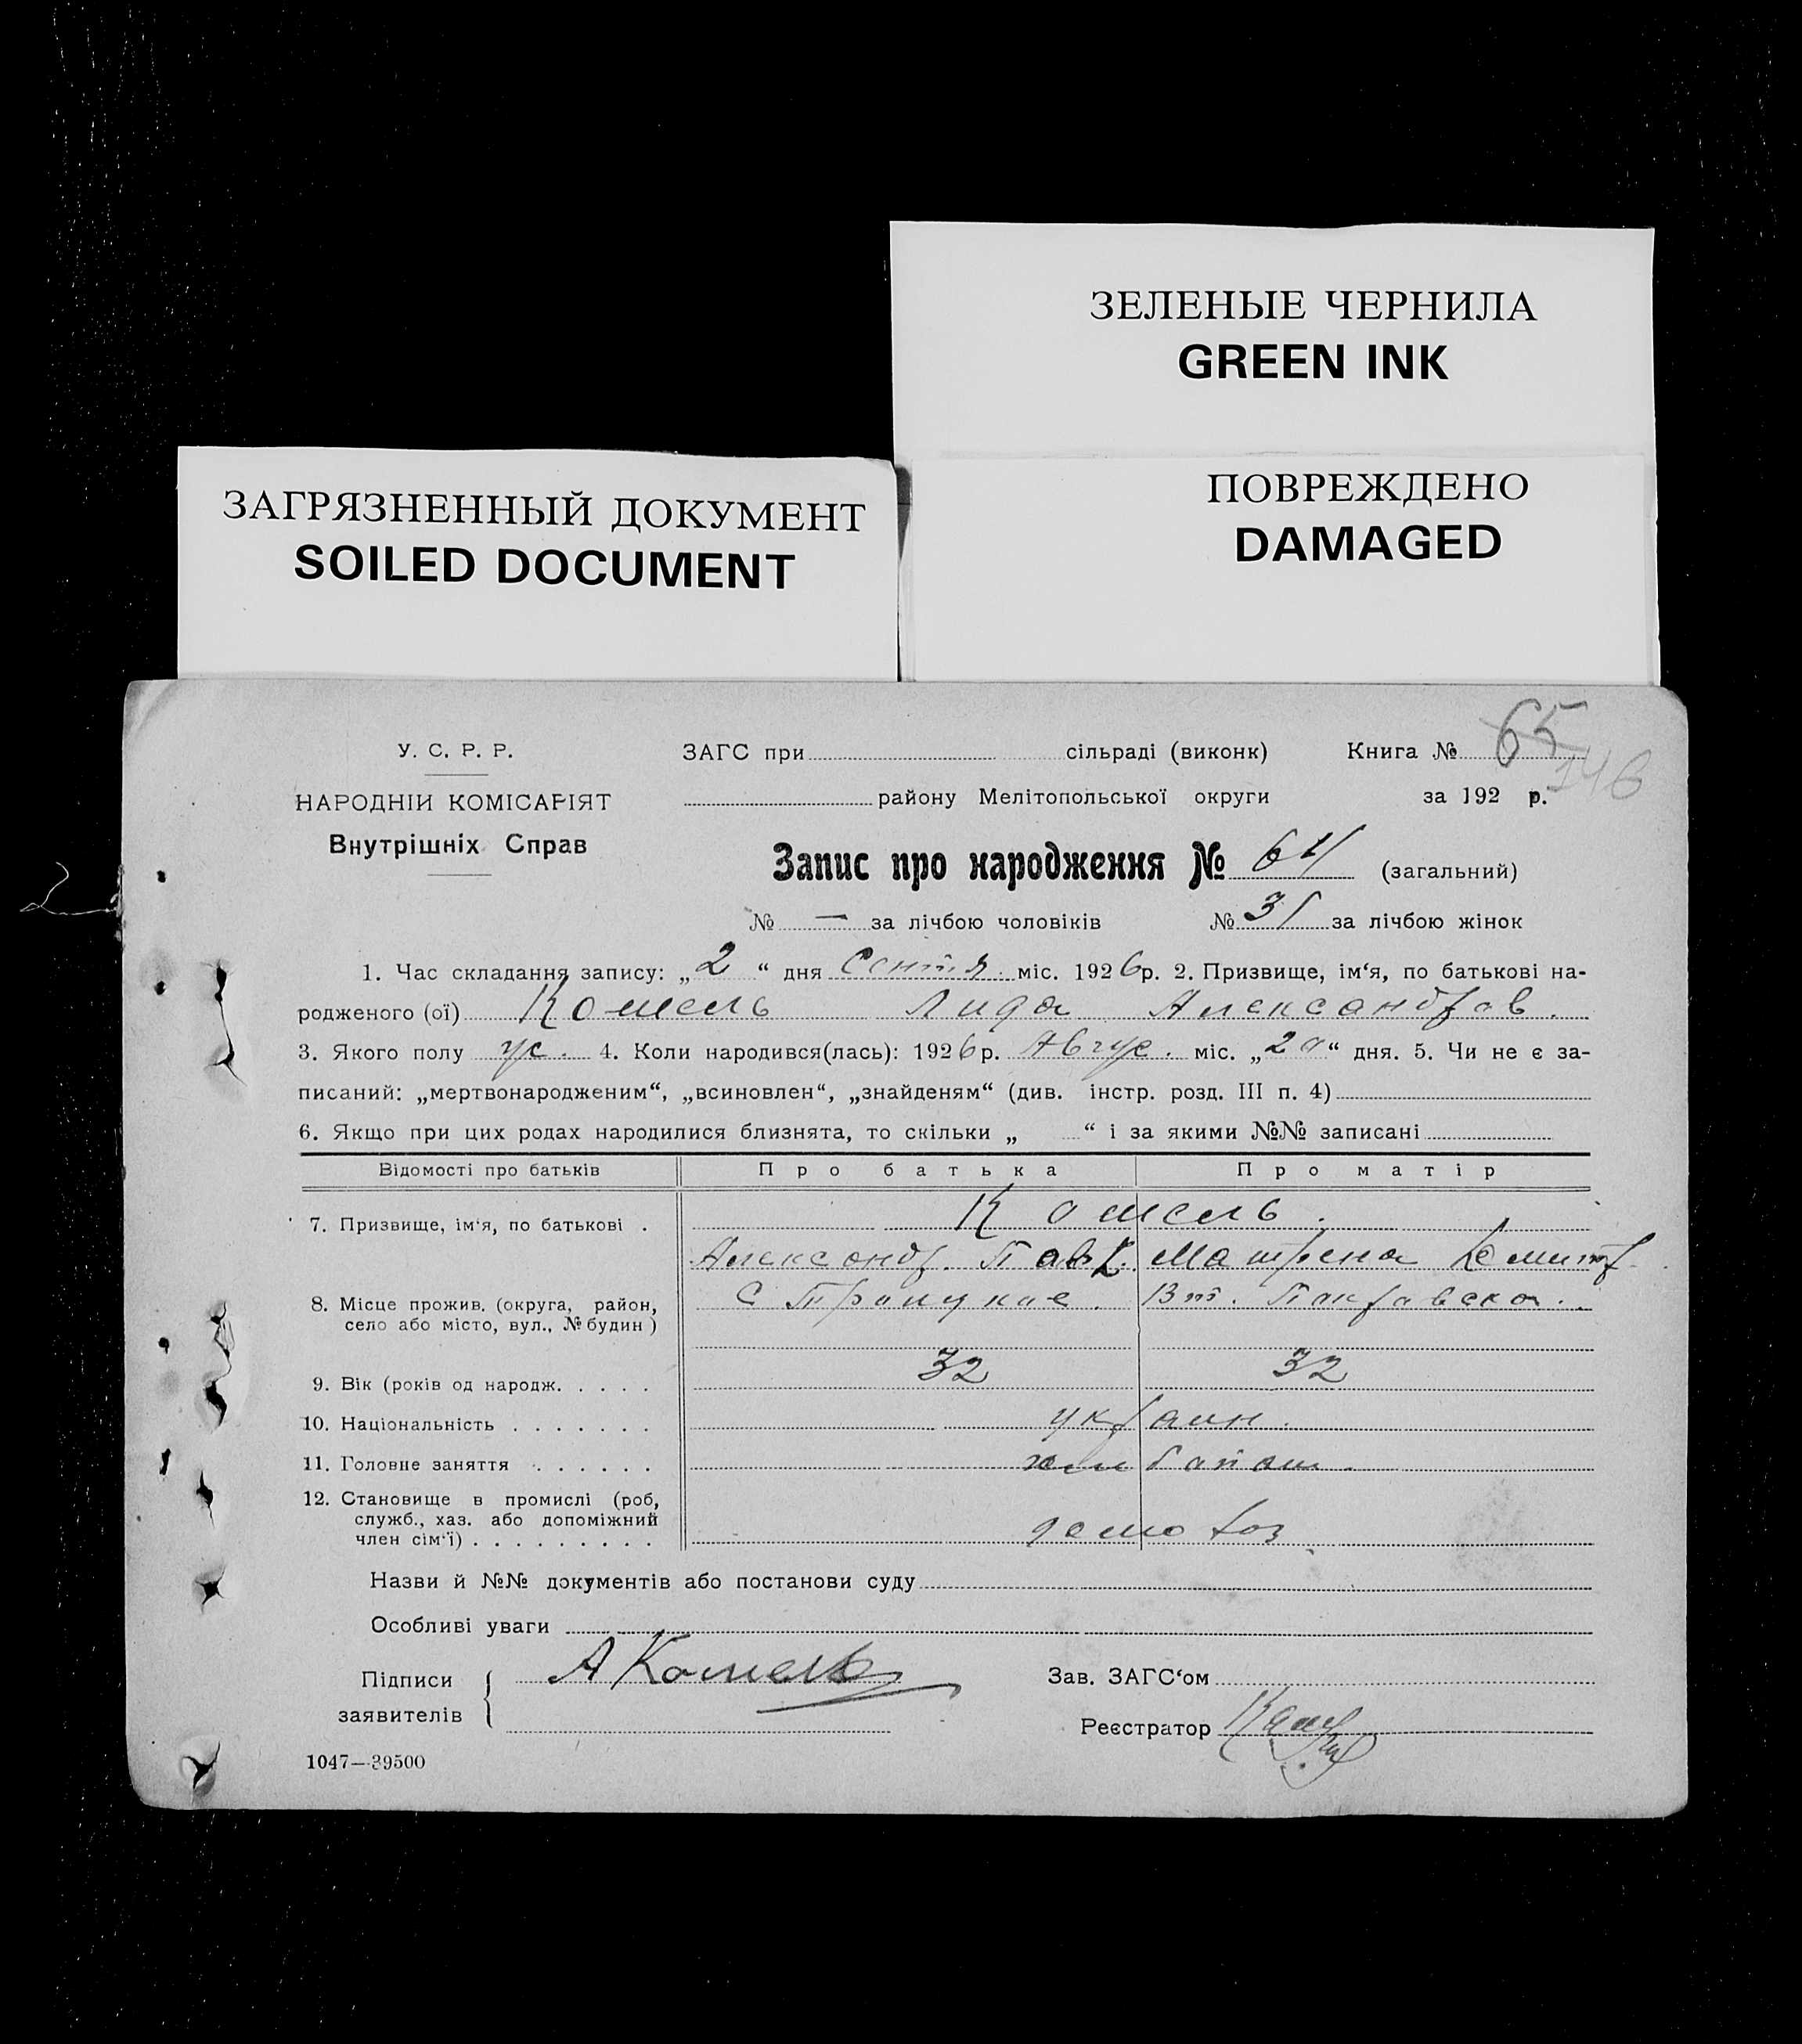 ЗЕЛЕНЫЕ ЧЕРНИЛА
GREEN INK
ПОВРЕЖДЕНО
DAMAGED
ЗАГРЯЗНЕННЫЙ ДОКУМЕНТ
SOILED DOCUMENT
65
146
У. С. Р. Р.
НАРОДНІЙ КОМІСАРІЯТ
Внутрішніх Справ
ЗАГС при сільраді (виконк) Книга №
району Мелітопольської округи за 192 р.
Запис про народження № 64 (загальний)
№ — за лічбою чоловіків № 31 за лічбою жінок
1. Час складання запису: „2“ дня міс. 1926р. 2. Призвище, ім‘я, по батькові на-
родженого (ої) Кошель Лида Александров.
3. Якого полу ж. 4. Коли народився(лась): 1926р. Авгус. міс. „“ дня. 5. Чи не є за-
писаний: „мертвонародженим“, „всиновлен“, „знайденям“ (див. інстр. розд. III п. 4)
6. Якщо при цих родах народилися близнята, то скільки „ “ і за якими №№ записані
Відомості про батьків Про батька Про матір
7. Призвище, ім‘я, по батькові . Кошель.
Александр. Павл. Матрена
8. Місце прожив. (округа, район, село або місто, вул., № будин)
9. Вік (років од народж. . . . . 32 32
10. Національність . . . . . . . украин.
11. Головне заняття . . . . . .
12. Становище в промислі (роб,
служб., хаз. або допоміжний
член сім‘ї) . . . . . . . . .
Назви й №№ документів або постанови суду
Особливі уваги
Підписи
заявителів А Кошель
Зав. ЗАГС‘ом
Реєстратор
1047—39500